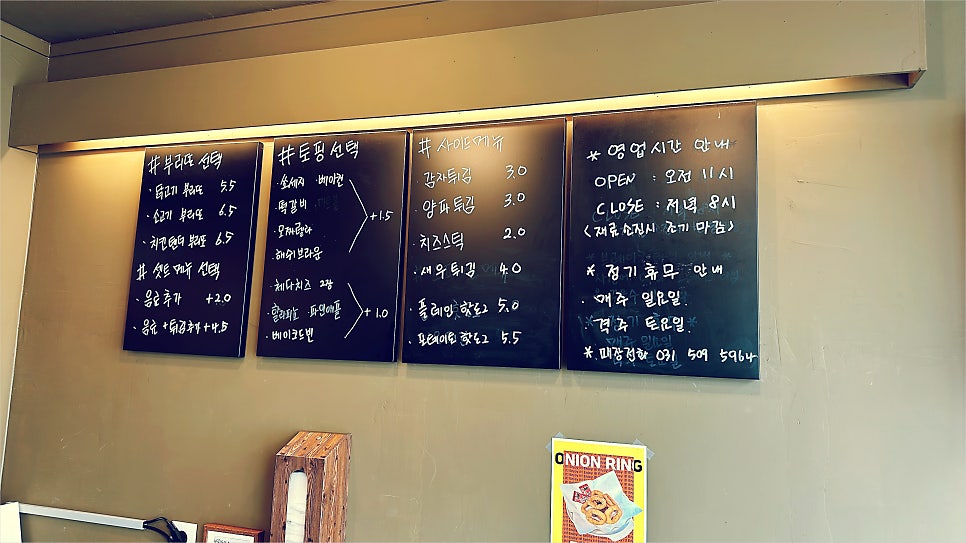 # 부리또 선택
· 닭고기 부리또 5.5
· 소고기 부리또 6.5
· 치킨텐더 부리또 6.5
# 셋트 메뉴 선택
· 음료추가 +2.0
· 음료+튀김추가 +4.5
# 토핑 선택
· 소세지 · 베이컨
· 떡갈비
· 모짜렐라
· 해쉬브라운
+1.5
· 체다치즈 2장
· 할라피뇨 · 파인애플
· 베이크드빈
+1.0
# 사이드메뉴
· 감자튀김 3.0
· 양파튀김 3.0
· 치즈스틱 2.0
· 새우튀김 4.0
· 플레인 핫도그 5.0
· 포테이토 핫도그 5.5
* 영업시간 안내
OPEN : 오전 11시
CLOSE : 저녁 8시
(재료소진시 조기마감)
* 정기휴무 안내
· 매주 일요일.
· 격주 토요일.
* 매장전화 031 509 5964
ONION RING